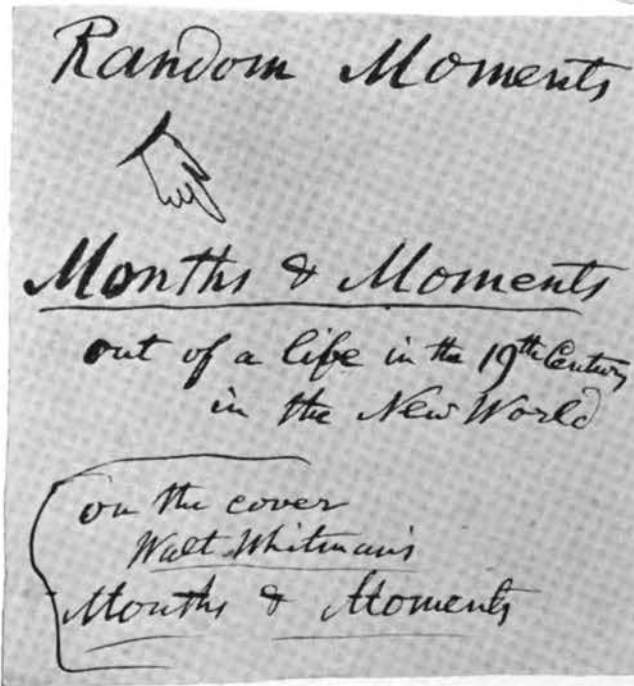 Random Moments
Months & Moments
out of a life in the 19th Century
in the New World
on the cover
Walt Whitman's
Months & Moments